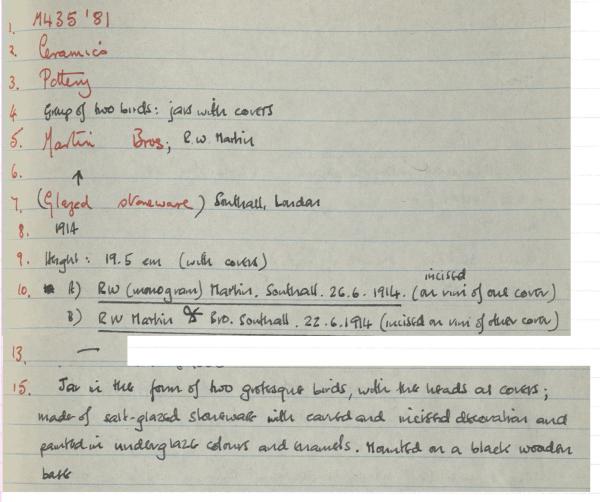 1. M435'81
2. Ceramics
3. Pottery
4 Group of two birds: jars with covers
5. Martin Bros; R.W. Martin
6. ↑
7. (Glazed stoneware) Southall, London
8. 1914
9. Height: 19.5 cm (with covers)
incised
10. A) RW (monogram) Martin. Southall. 26.6.1914. (on rim of one cover)
B) RW Martin & Bro. Southall. 22.6.1914 (incised on rim of other cover)
13. —
15. Jar in the form of two grotesque birds, with the heads as covers;
made of salt-glazed stoneware with carved and incised decoration and
painted in underglaze colours and enamels. Mounted on a black wooden
base